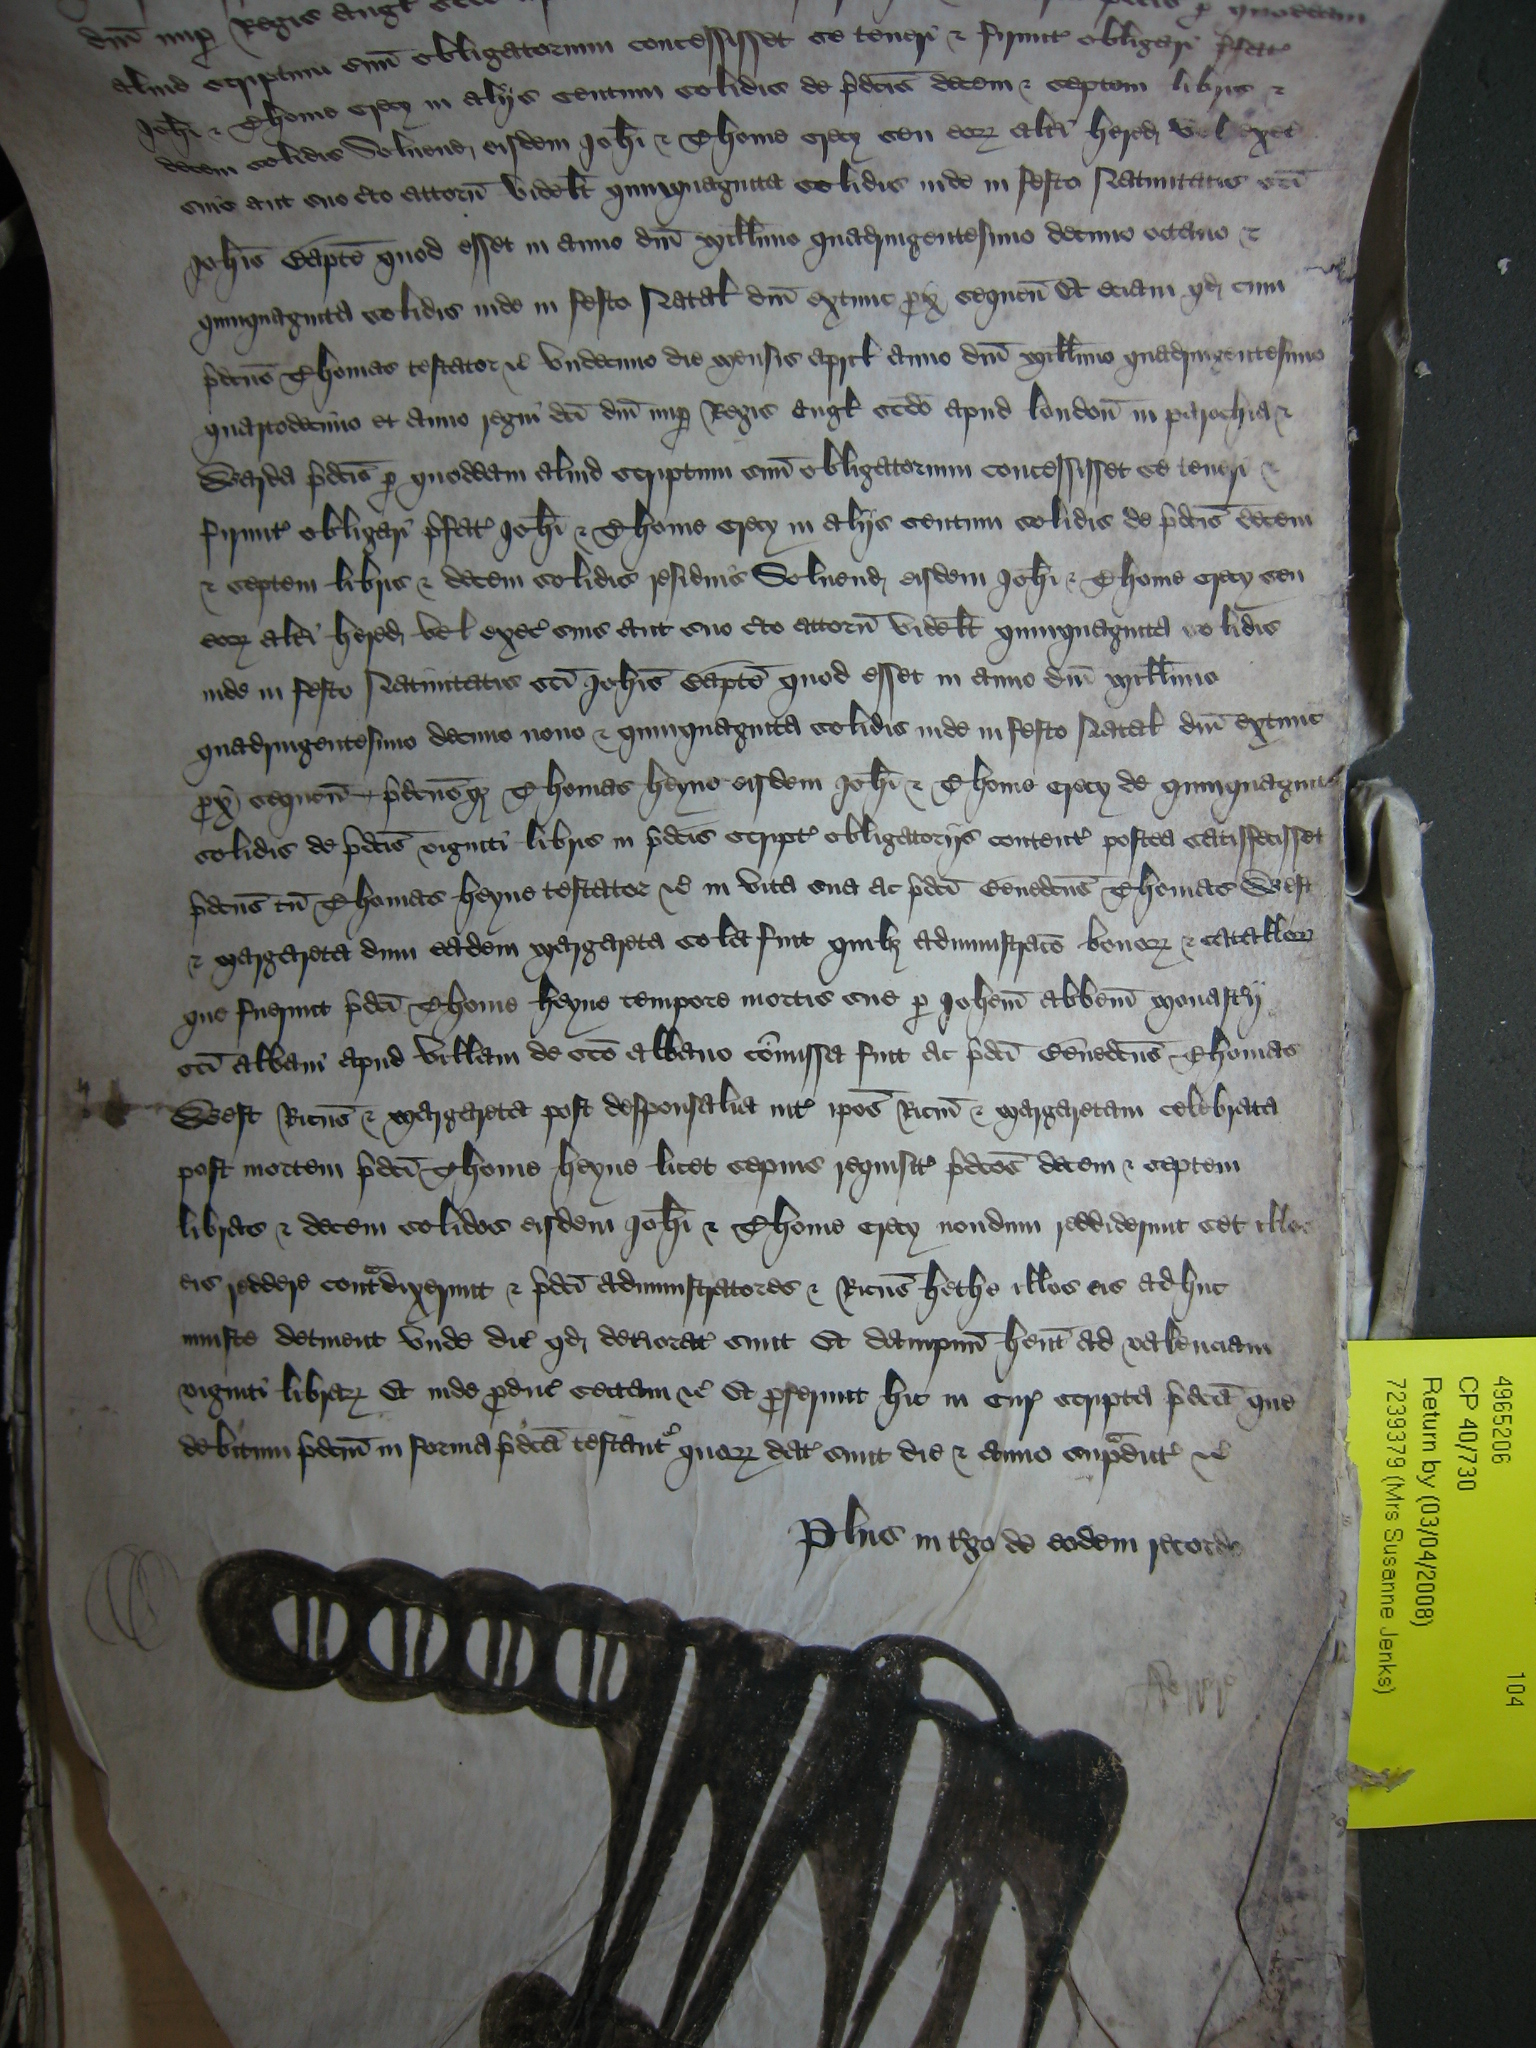 dnī nup̄ Regis Angł
aliud scriptum suū obligatorium concessisset se teneri & firmit' obligari p̄fat'
Joh̄i & Thome Crecy in alijs centum solidis de p̄dcīs decem & septem libris &
decem solidis Soluend eisdem Joh̄i & Thome Crecy seu eoꝝ alt'i hered vel exec'
suis aut suo c̄to attorn̄ videlt̄ quinquaginta solidis inde in festo Natiuitatis sc̄i
Joh̄is Bapt̄e quod esset in anno dnī mill̄imo quadringentesimo decimo octauo &
quinquaginta solidis inde in festo Natał dnī extunc px̄ sequen̄ Et eciam qd cum
p̄dcūs Thomas testator &c̄ vndecimo die mensis Aprił anno dnī mill̄imo quadringentesimo
quartodecimo et anno regni dc̄i dnī nup̄ Regis Angł sc̄do apud london̄ in parochia &
Warda p̄dcīs p quoddam aliud scriptum suū obligatorium concessisset se teneri &
firmit' obligari p̄fat' Joh̄i & Thome Crecy in alijs centum solidis de p̄dcīs decem
& septem libris & decem solidis residuis Soluend eisdem Joh̄i & Thome Crecy seu
eoꝝ alt'i hered vel exec' suis aut suo c̄to attorn̄ videlt̄ quinquaginta solidis
inde in festo Natiuitatis sc̄i Joh̄is Bapt̄e quod esset in anno dnī mill̄imo
quadringentesimo decimo nono & quinquaginta solidis inde in festo Natał dnī extunc
px̄ sequen̄ p̄dcūsqꝫ Thomas heyne eisdem Joh̄i & Thome Crecy de quinquagint'
solidis de p̄dcīs viginti libris in p̄dcīs script' obligatorijs content' postea satisfecisset
p̄dcūs tn̄ Thomas heyne testator &c̄ in vita sua ac p̄dcī Benedcūs Thomas West
& Margareta dum eadem Margareta sola fuit quibꝫ administrac̄o bonoꝝ & catalloꝝ
que fuerunt p̄dcī Thome heyne tempore mortis sue p Joh̄em Abb̄em Monast'ij
sc̄i Albani apud villam de sc̄o Albano com̄issa fuit ac p̄dcī Benedcūs Thomas
West Ricūs & Margareta post desponsalia int' ip̄os Ricm̄ & Margaretam celebrata
post mortem p̄dcī Thome heyne licet sepius requisit' p̄dcōs decem & septem
libras & decem solidos eisdem Joh̄i & Thome Crecy nondum reddiderunt set illos
eis reddere cont̾dixerunt & p̄dcī administratores & Ricūs hethe illos eis adhuc
iniuste detinent vnde dic' qd deteriorat' sunt Et dampnū hent̄ ad valenciam
viginti libraꝝ Et inde pduc' sectam &c̄ Et pferunt hic in Cur' scripta p̄dcā que
debitum p̄dcm̄ in forma p̄dcā testant' quoꝝ dat' sunt die & anno sup̾dict' &c̄
Plus in t'go de eodem recordo
49965206
104
CP 40/730
Return by (03/04/2008)
7239379 (Mrs Susanne Jenks)